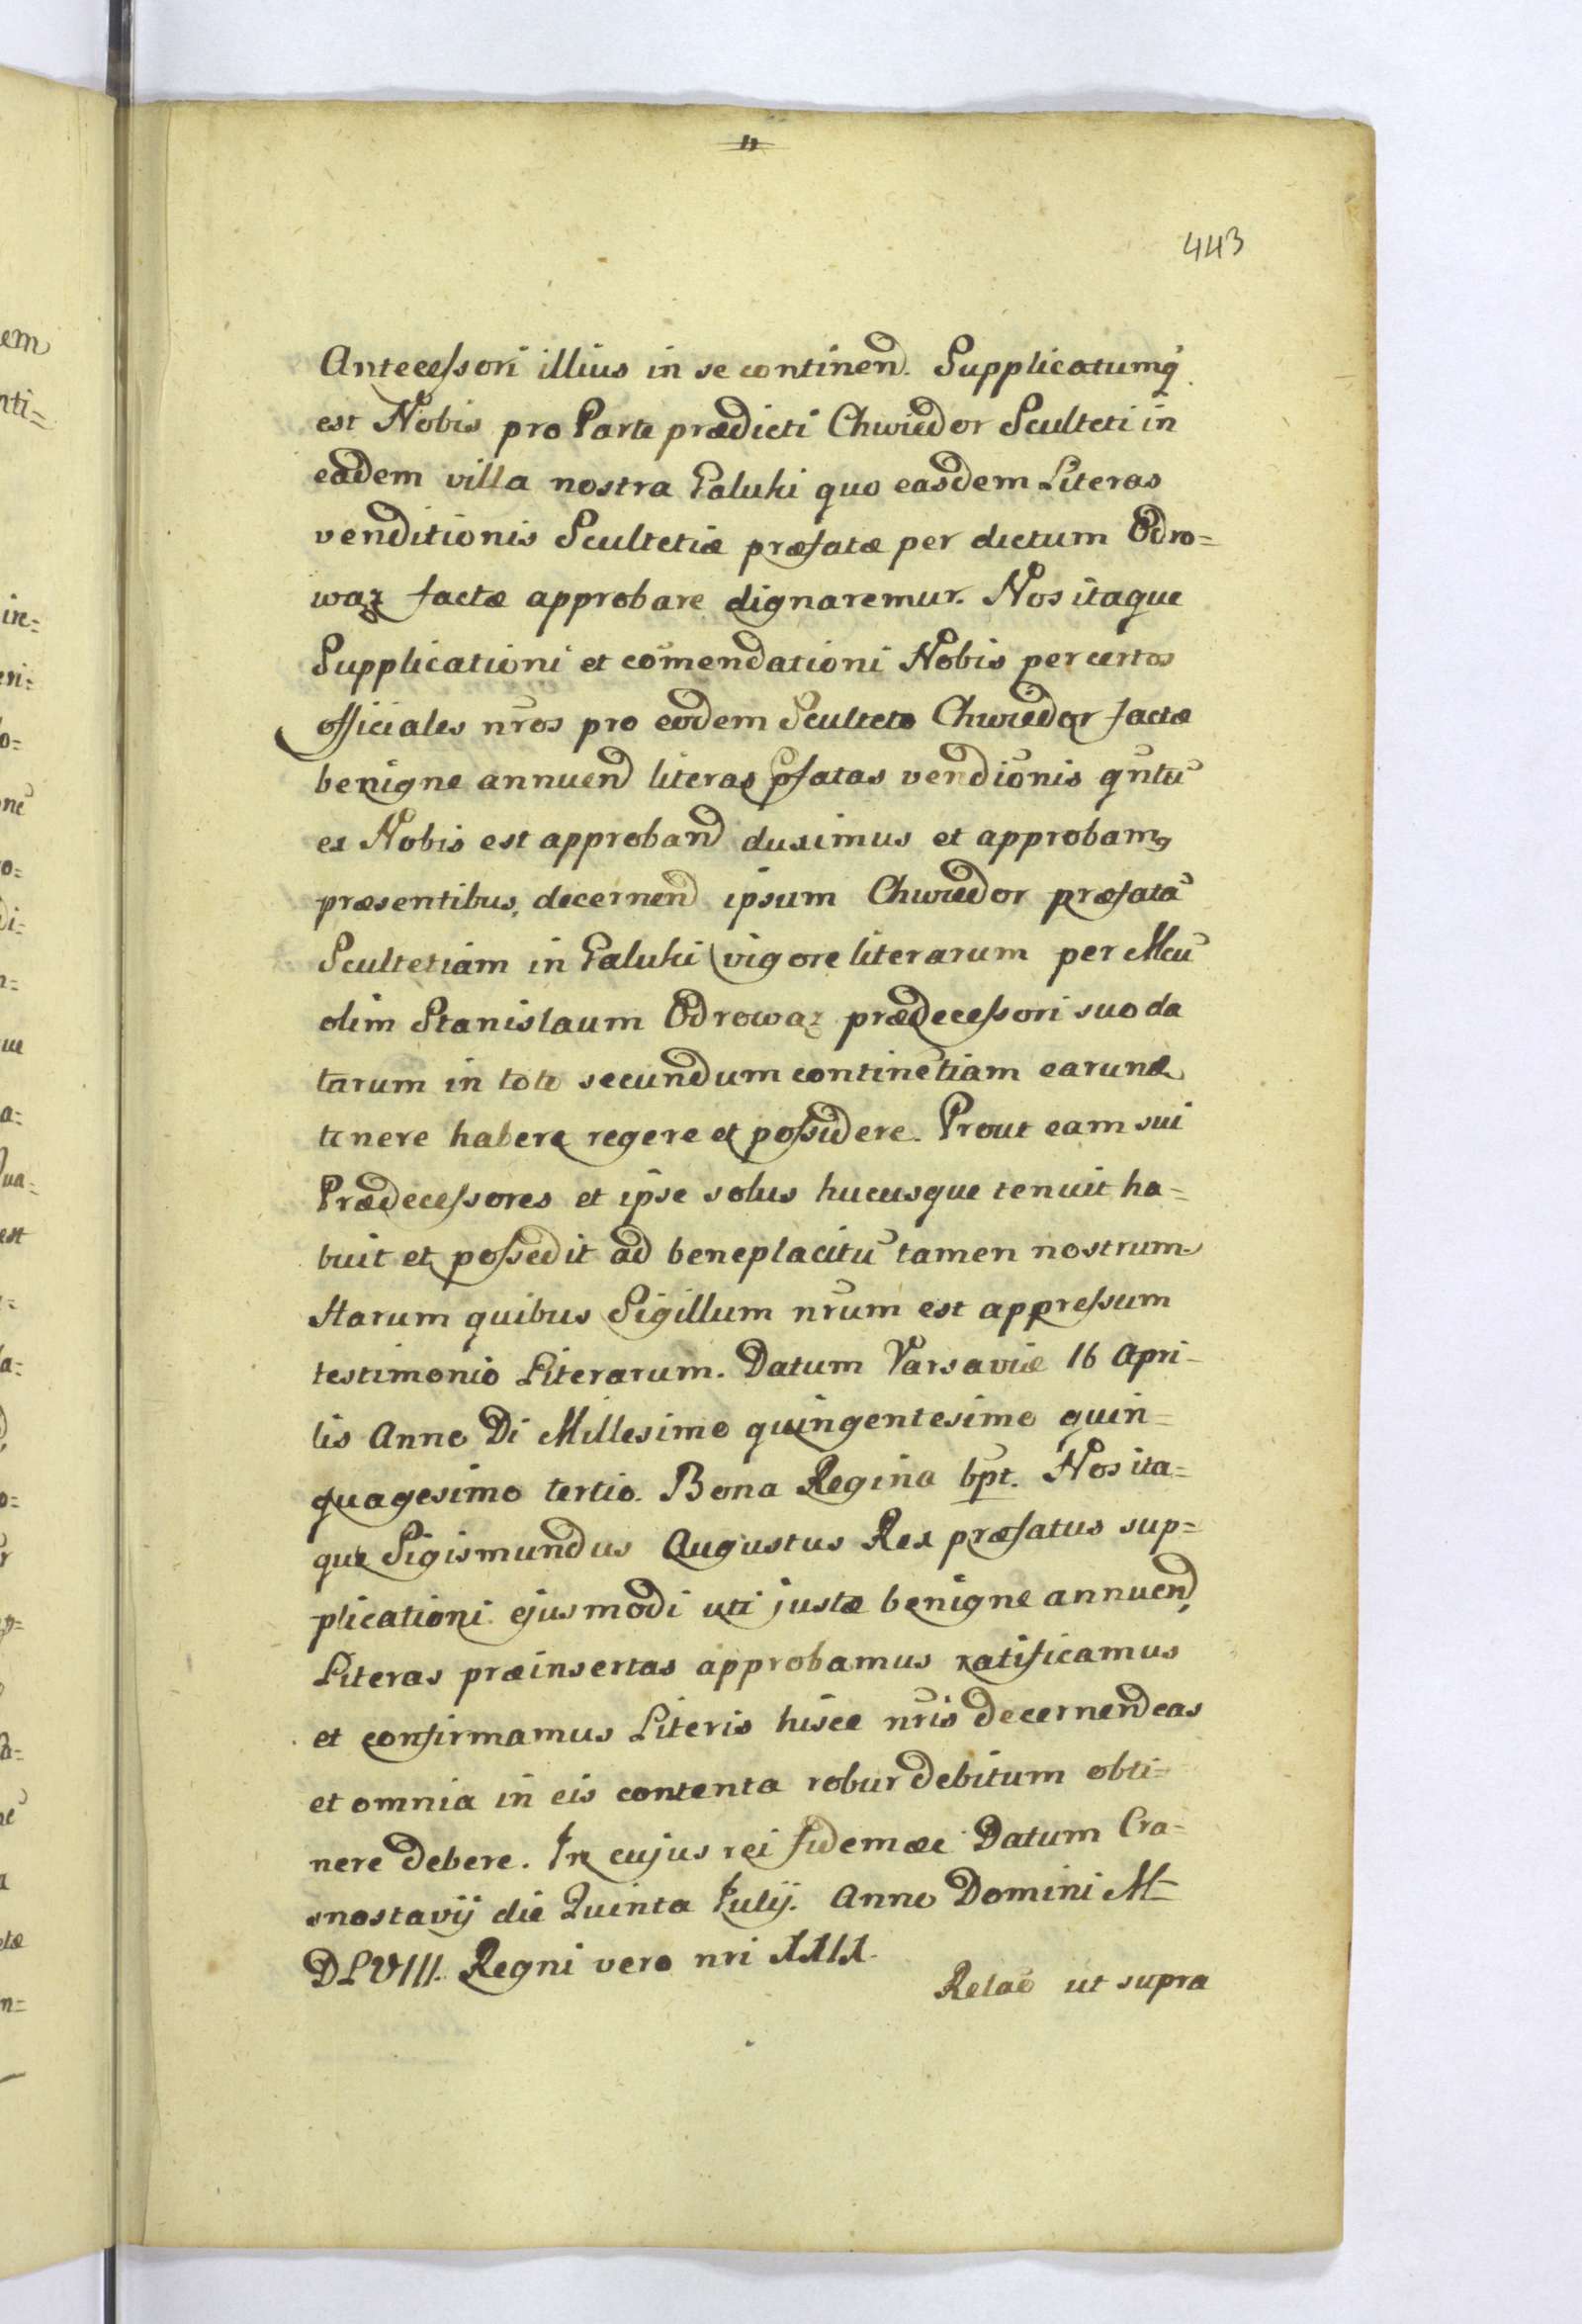 443
Antecessori illius in se continen. Supplicatumq
est Nobis pro Parte prædicti Chwiedor Sculteti in
eadem villa nostra Galuki quo easdem Literas
venditionis Scultetiæ præfatæ per dictum Odro=
waz factæ approbare dignaremur. Nos itaque
Supplicationi et com̄endationi Nobis per certos
officiales nr̄os pro eodem Sculteto Chwiedor factæ
benigne annuend literas pfatas vendiōnis qn̄tū
ex Nobis est approband duximus et approbamꝰ
præsentibus, decernend ipsum Chwiedor præfatā
Scultetiam in Galuki vigore literarum per Mcū
olim Stanislaum Odrowaz prædecessori suo da
tarum in toto secundum continētiam earund
tenere habere regere et possidere. Prout eam sui
Prædecessores et ipse solus hucusque tenuit ha=
buit et possedit ad beneplacitū tamen nostrum
Harum quibus Sigillum nr̄um est appressum
testimonio Literarum. Datum Varsaviæ 16 Apri-
lis Anno Di Millesimo quingentesimo quin=
quagesimo tertio. Bona Regina spt. Nos ita=
que Sigismundus Augustus Rex præfatus sup=
plicationi ejusmodi uti justæ benigne annuend,
Literas præinsertas approbamus ratificamus
et confirmamus Literis hisce nr̄is decernend eas
et omnia in eis contenta robur debitum obti=
nere debere. In cujus rei fidem æc Datum Cra=
snostavij die Quinta Julij. Anno Domini M
DLVIII. Regni vero nri XXIX.
Relaō ut supra